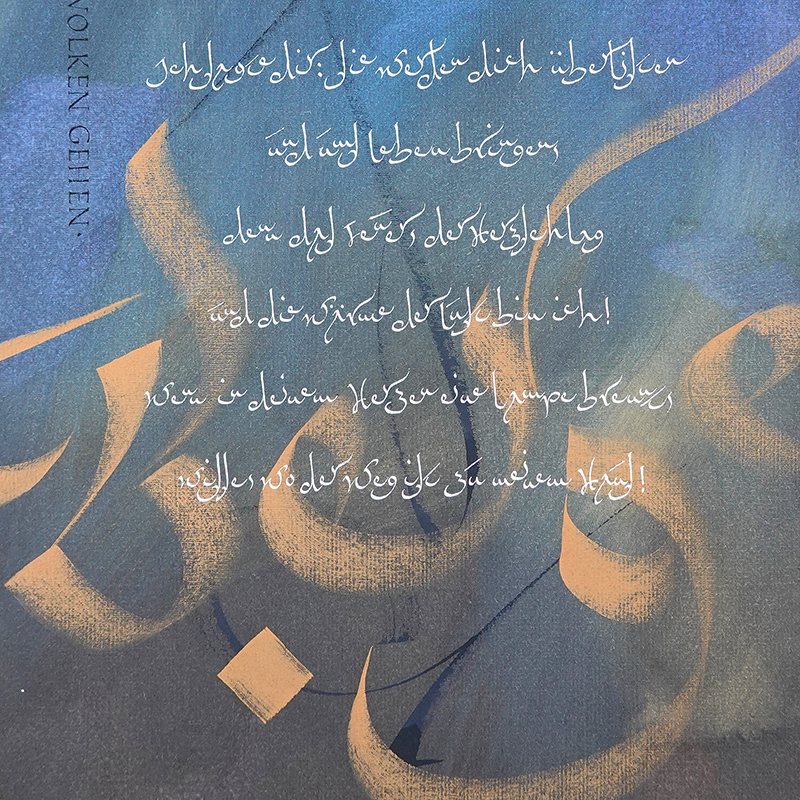 WOLKEN GEHEN.
Ich sage dir: sie werden dich überlisten
und ums Leben bringen,
denn das Feuer, der Herzschlag
und die Wärme der Lust bin ich!
Wenn in deinem Herzen eine Lampe brennt,
wisse, wo der Weg ist zu meinem Haus!